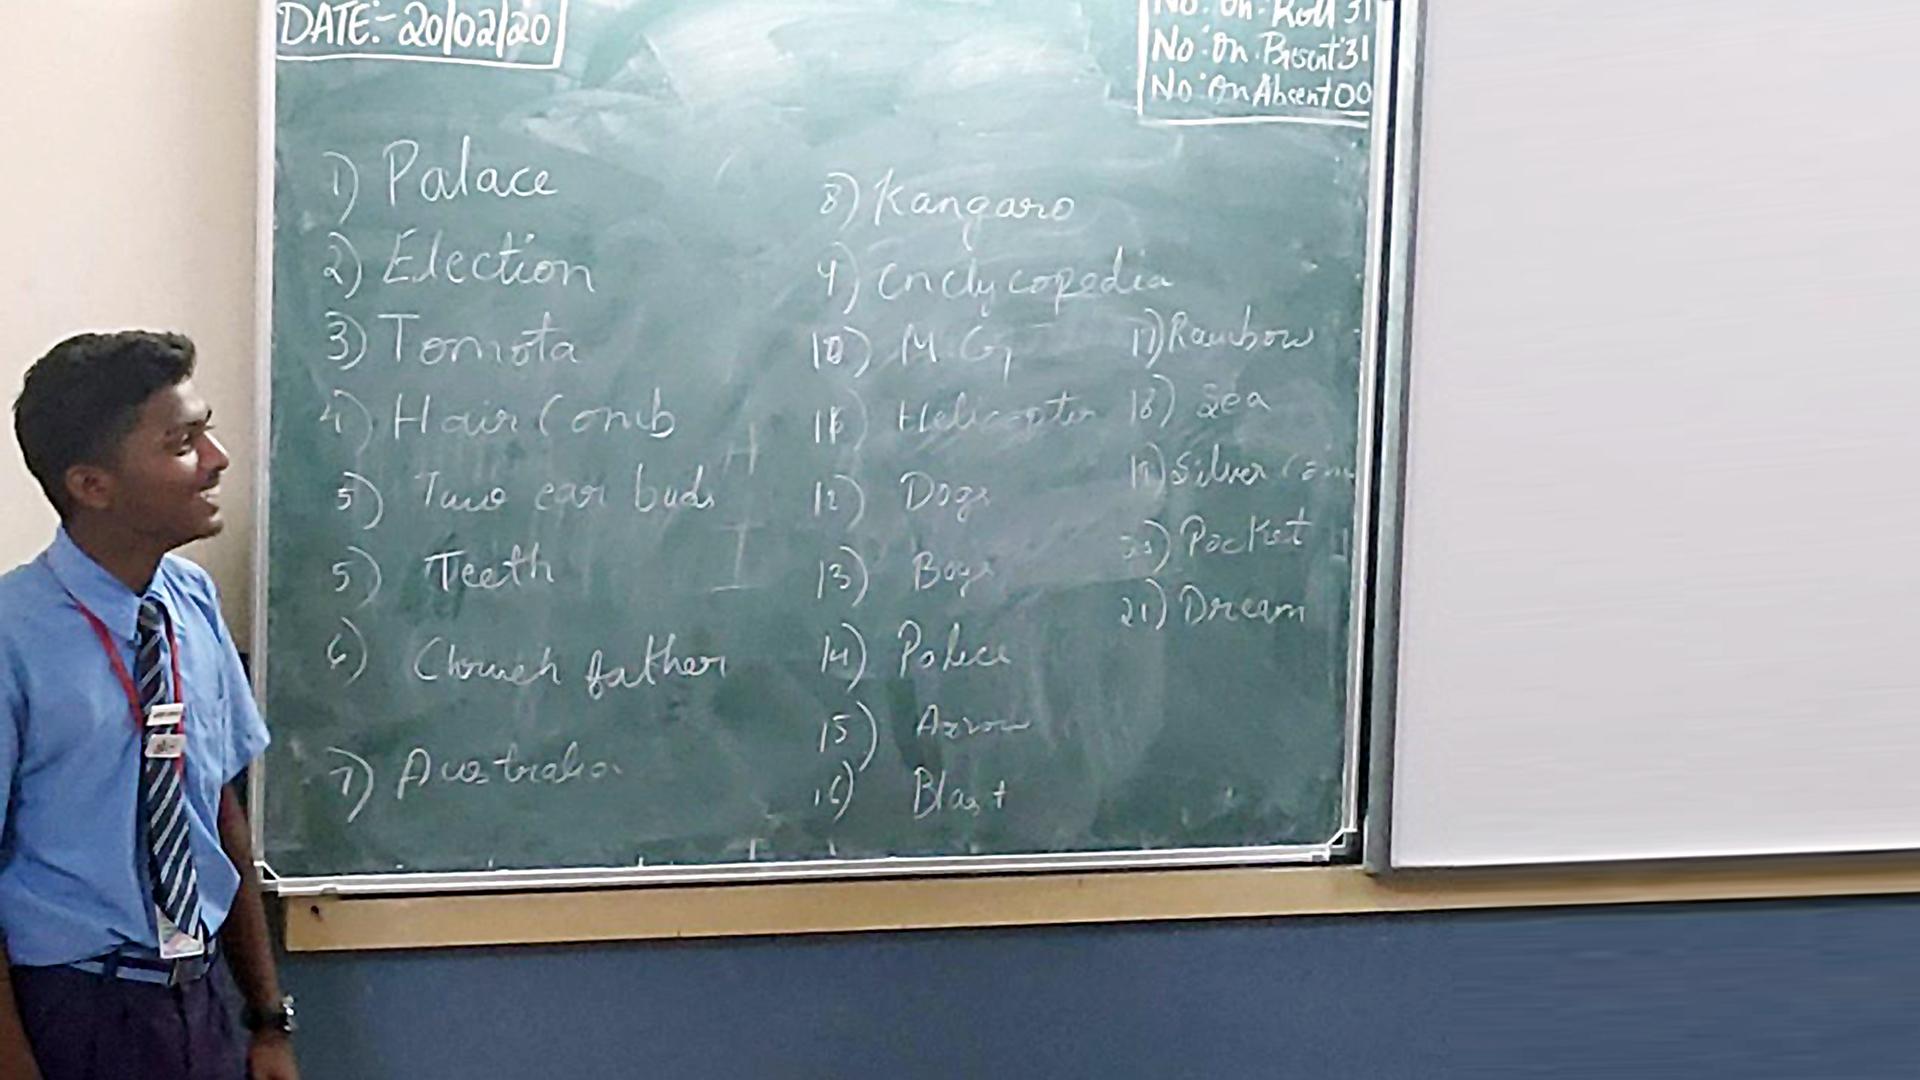 DATE:- 20/02/20
No: On Roll 31
No: On Present 31
No: On Absent 00
1) Palace
2) Election
3) Tomota
4) Hair Comb
5) Two ear buds
5) Teeth
6) Chruch father
7) Australia
8) Kangaro
9) Enclycopedia
10) M G
11) Helicopter
12) Dogs
13) Boys
14) Police
15) Arrow
16) Blast
17) Rainbow
18) Sea
19) Silver
20) Pocket
21) Dream